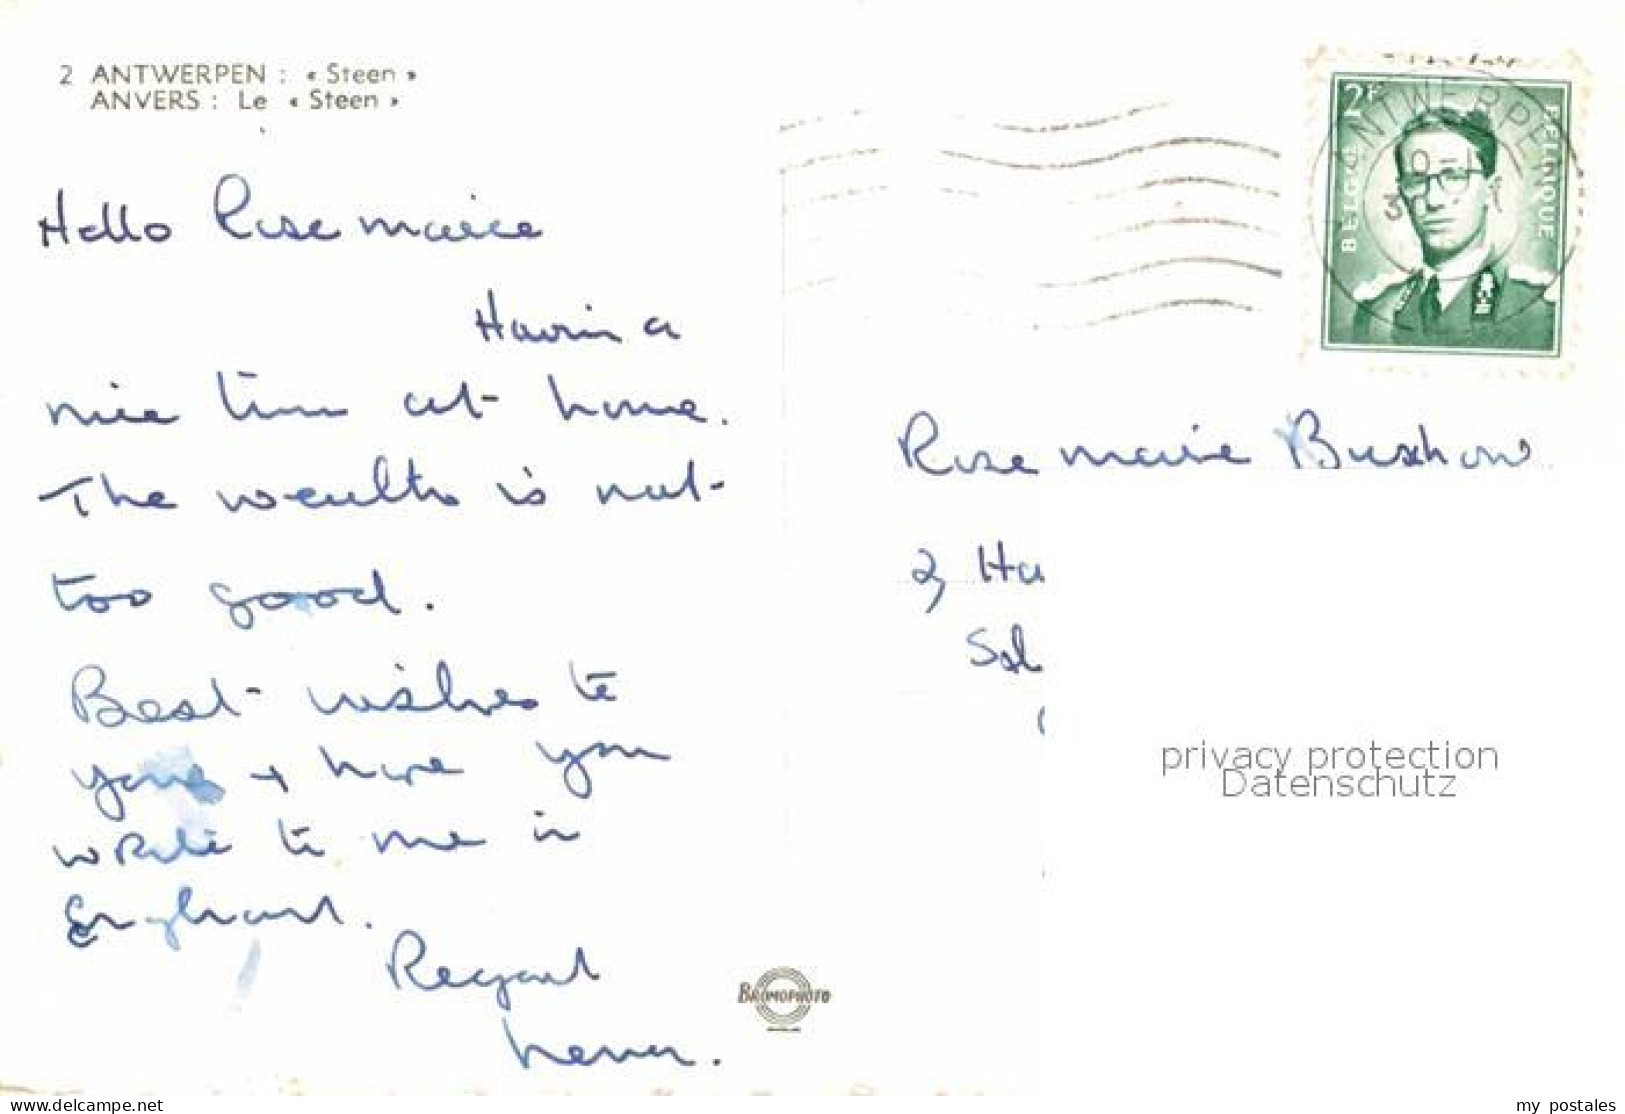 2 ANTWERPEN : « Steen »
ANVERS : Le « Steen »
Hello Rose marie
Havin a
nice time at home.
The weather is not
too good.
Best wishes to
you + hope you
write to me in
England.
Regard
2F
BELGIE
BELGIQUE
ANTWERPEN
Rose marie
2, Ha
Sol
privacy protection
Datenschutz
BROMOPHOTO
www.delcampe.net
my_postales